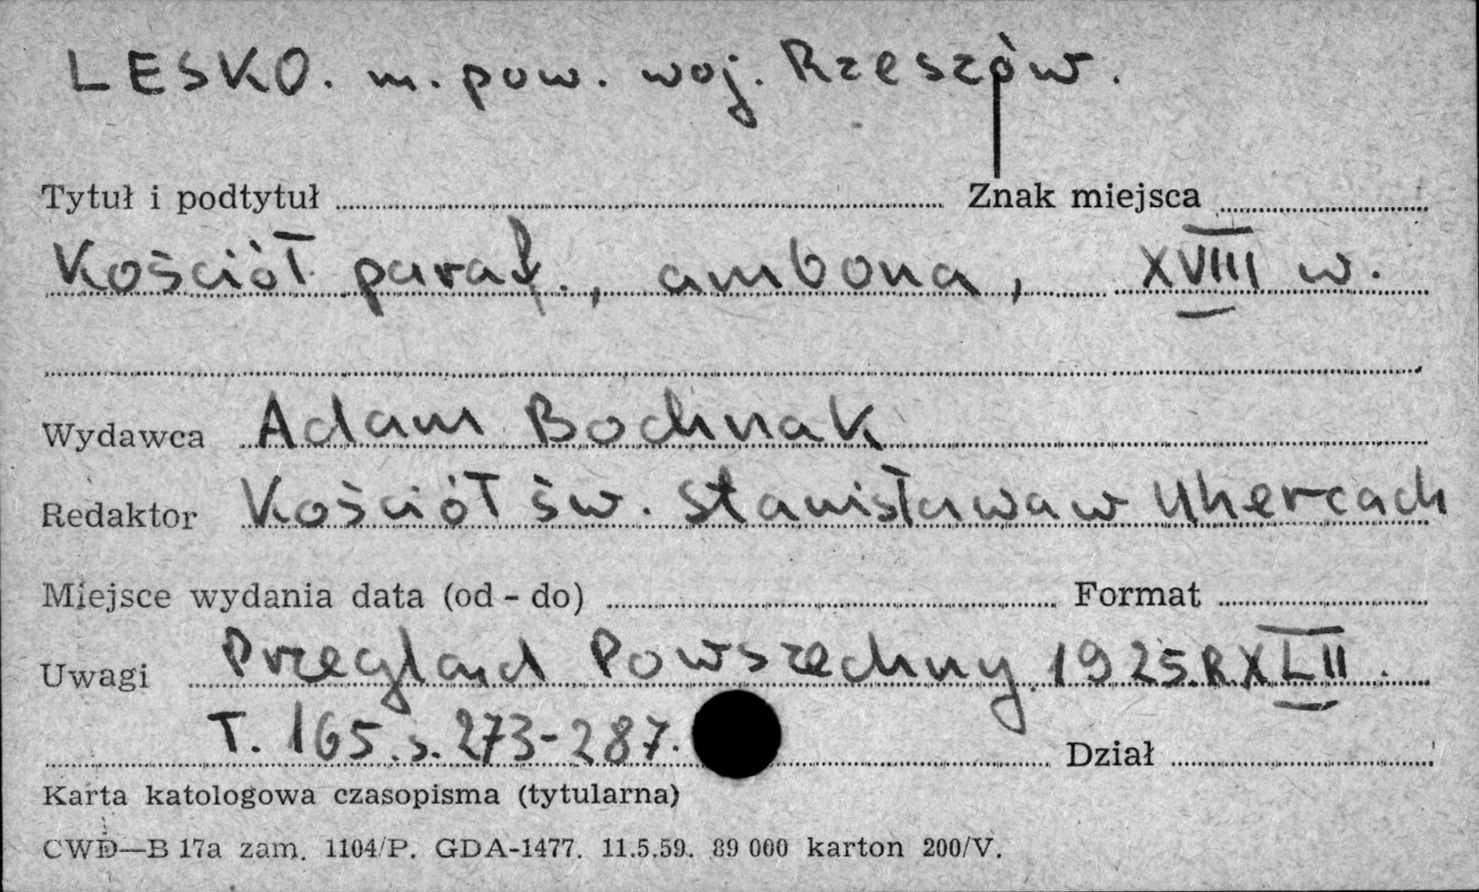 LESKO. m. pow. woj. Rzeszów.
Tytuł i podtytuł Znak miejsca
Kościół paraf., ambona, XVIII w.
Wydawca Adam Bochnak
Redaktor Kościół św. Stanisława w Uhercach
Miejsce wydania data (od - do) Format
Uwagi Przegląd Powszechny 1925. R XLII.
T. 165. s. 273-287. Dział
Karta katologowa czasopisma (tytularna)
CWD—B 17a zam. 1104/P. GDA-1477. 11.5.59. 89 000 karton 200/V.